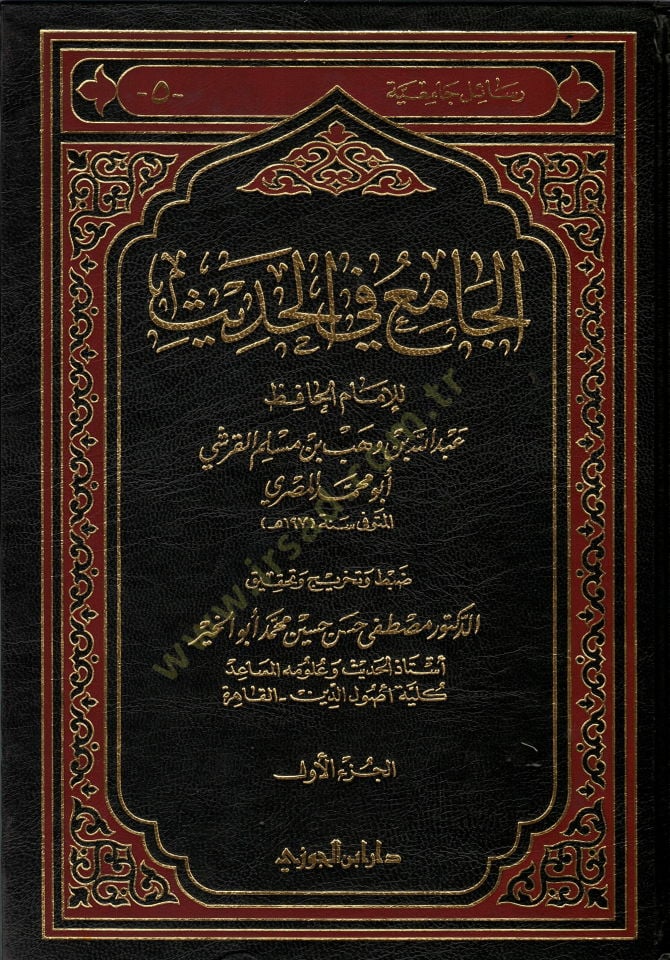 رسائل جامعية
-٥-
الجامع في الحديث
للإمام الحافظ
عبد الله بن وهب بن مسلم القرشي
أبو محمد المصري
المتوفى سنة (١٩٧هـ)
ضبط وتخريج وتحقيق
الدكتور مصطفى حسن حسين محمد أبو الخير
أستاذ الحديث وعلومه المساعد
كلية أصول الدين - القاهرة
الجزء الأول
دار ابن الجوزي